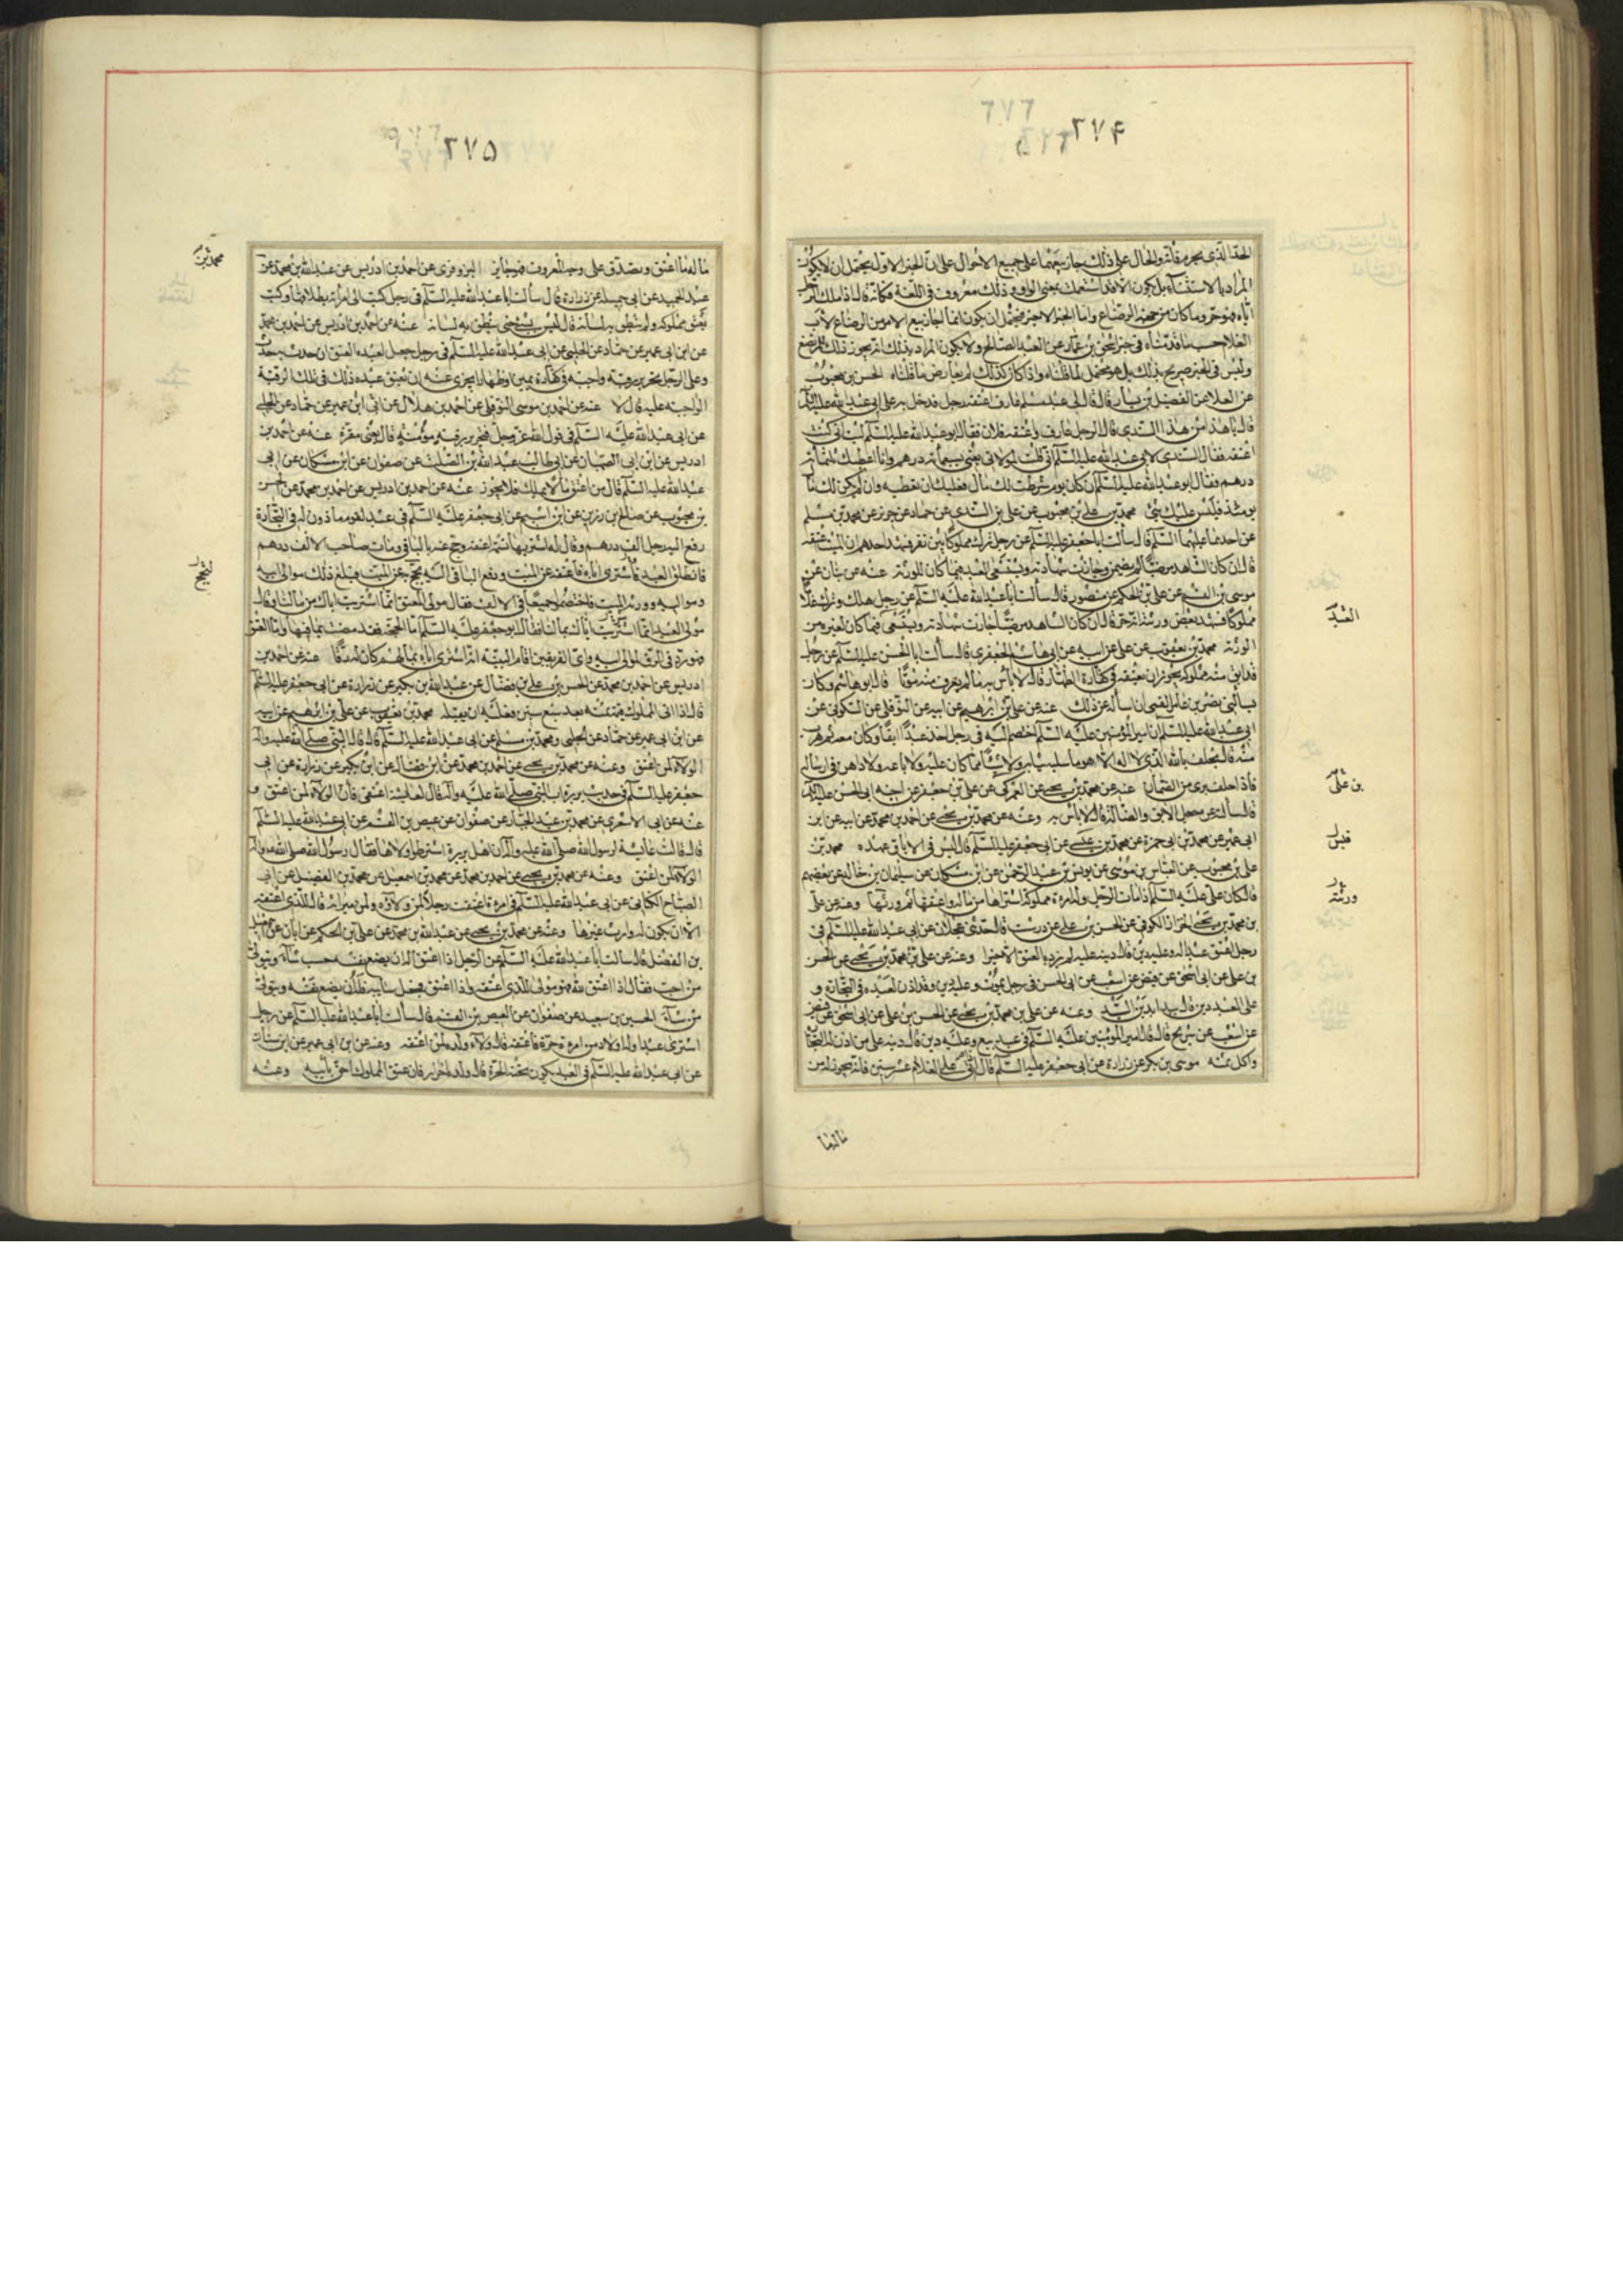 ٢٧۴
الحد الذي يحرم فانه والحال على ذلك جاز بيعهما على جميع الاحوال على ان الخبر الاول يحتمل ان لا يكون
المراد بالا الاستثناء بل يكون الا قد استعملت بمعنى الواو وذلك معروف في اللغة فكانه قال اذا ملك الرجل
اباه فهو حر وما كان من جهة الرضاع واما الخبر الاخير فيحتمل ان يكون انما اجاز بيع الام من الرضاع لاب
الغلام حسب ما قدمناه في خبر اسحق بن عمار عن العبد الصالح ولا يكون المراد بذلك انه يجوز ذلك للمرتضع
وليس في الخبر صريح بذلك بل هو محتمل لما قلناه واذا كان كذلك لم يعارض ما قلناه الحسن بن محبوب
عن العلا عن الفضيل بن يسار قال قال لي عبد مسلم عارف اعتقه رجل فدخل به على ابي عبد الله عليه السلم
قال يا هذا من هذا السندي قال الرجل عارف واعتقه فلان فقال ابو عبد الله عليه السلم ليت اني كنت
اعتقه فقال السندي لابي عبد الله عليه السلم اني قلت لمولاي بعني بسبعمائة درهم وانا اعطيك ثلثمائة
درهم فقال ابو عبد الله عليه السلم ان كان يوم شرطت لك مال فعليك ان تعطيه وان لم يكن لك مال
يومئذ فليس عليك شئ محمد بن علي بن محبوب عن علي بن السندي عن حماد عن حريز عن محمد بن مسلم
عن احدهما عليهما السلم قال سألت ابا جعفر عليه السلم عن رجل ترك مملوكا بين نفر فشهد احدهم ان الميت اعتقه
قال ان كان الشاهد مرضيا لم يضمن وجازت شهادته ويستسعى العبد فيما كان للورثة عنه عن بنان عن
موسى بن القسم عن علي بن الحكم عن منصور قال سألت ابا عبد الله عليه السلم عن رجل هلك وترك غلاما
مملوكا فشهد بعض ورثته انه حر قال ان كان الشاهد مرضيا جازت شهادته ويستسعى فيما كان لغيره من
الورثة محمد بن يعقوب عن علي عن ابيه عن ابي هاشم الجعفري قال سألت ابا الحسن عليه السلم عن رجل
قد ابق منه مملوكه يجوز ان يعتقه في كفارة الظهار قال لا بأس به ما لم يعرف منه موتا قال ابو هاشم وكان
سألني نصر بن عامر القمي ان اسأله عن ذلك عنه عن علي بن ابرهيم عن ابيه عن النوفلي عن السكوني عن
ابي عبد الله عليه السلم ان امير المؤمنين عليه السلم اختصم اليه في رجل اخذ عبدا ابقا وكان معه ثم هرب
منه قال يحلف بالله الذي لا اله الا هو ما سلبه ثيابه ولا شيئا مما كان عليه ولا باعه ولا داهن في ارساله
فاذا حلف برئ من الضمان عنه عن محمد بن يحيى عن العمركي عن علي بن جعفر عن اخيه ابي الحسن عليه السلم
قال سألته عن جعل الابق والضالة قال لا بأس به وعنه عن محمد بن يحيى عن احمد بن محمد عن ابيه عن ابن
ابي عمير عن محمد بن ابي حمزة عن محمد بن علي عن ابي جعفر عليه السلم قال ليس في الاباق عهدة محمد بن
علي بن محبوب عن العباس بن موسى عن يونس بن عبد الرحمن عن ابن مسكان عن سليمان بن خالد عن بعضهم
قال كان علي عليه السلم اذا مات الرجل وله امرأة مملوكة اشتراها من ماله واعتقها ثم ورثها وعنه عن علي
بن محمد بن يحيى الخزاز الكوفي عن الحسن بن علي عن درست قال حدثني عجلان عن ابي عبد الله عليه السلم في
رجل اعتق عبدا له وعليه دين قال دينه عليه لم يزده العتق الا خيرا وعنه عن علي بن محمد بن يحيى عن الحسن
بن علي عن ابي اسحق عن فيض عن اشعث عن ابي الحسن في رجل يموت وعليه دين وقد اذن لعبده في التجارة و
على العبد دين قال يبدأ بدين السيد وعنه عن علي بن محمد بن يحيى عن الحسن بن علي عن ابي اسحق عن فيض
عن اشعث عن شريح قال قال امير المؤمنين عليه السلم في عبد بيع وعليه دين قال دينه على من اذن له في التجارة
واكل ثمنه موسى بن بكر عن زرارة عن ابي جعفر عليه السلم قال اذا اتى على الغلام عشر سنين فانه يجوز له من
العبد
بن علي
قبل
ورثته
ماله ما
٢٧۵
ماله ما اعتق وتصدق على وجه المعروف فهو جايز البزوفري عن احمد بن ادريس عن عبد الله بن محمد عن
عبد الحميد عن ابي جميلة عن زرارة قال سألت ابا عبد الله عليه السلم في رجل كتب الى امرأته بطلاقها او كتب
بعتق مملوكه ولم ينطق به لسانه قال ليس بشئ حتى ينطق به لسانه عنه عن احمد بن ادريس عن احمد بن محمد
عن ابن ابي عمير عن حماد عن الحلبي عن ابي عبد الله عليه السلم في رجل جعل لعبده العتق ان حدث به حدث
وعلى الرجل تحرير رقبة واجبة في كفارة يمين او ظهار ايجزي عنه ان يعتق عبده ذلك في تلك الرقبة
الواجبة عليه قال لا عنه عن احمد بن موسى النوفلي عن احمد بن هلال عن ابن ابي عمير عن حماد عن الحلبي
عن ابي عبد الله عليه السلم في قول الله عز وجل فتحرير رقبة مؤمنة قال يعني مقرة عنه عن احمد بن
ادريس عن ابن ابي الصهبان عن ابي طالب عبد الله بن الصلت عن صفوان عن ابن مسكان عن ابي
عبد الله عليه السلم قال من اعتق ما لا يملك فلا يجوز عنه عن احمد بن ادريس عن احمد بن محمد عن الحسن
بن محبوب عن صالح بن رزين عن ابن اشيم عن ابي جعفر عليه السلم في عبد لقوم مأذون له في التجارة
دفع اليه رجل الف درهم وقال له اشتر بها نسمة اعتقه وحج عنه بالباقي ومات صاحب الالف درهم
فانطلق العبد فاشترى اباه فاعتقه عن الميت ودفع الباقي اليه يحج عن الميت وبلغ ذلك موالى ابيه
ومواليه وورثة الميت فاختصموا جميعا في الالف فقال مولى المعتق انما اشتريت اباك من مالنا وقال
مولى العبد انما اشتريت اباك بمالنا فقال ابو جعفر عليه السلم اما الحجة فقد مضت بما فيها واما المعتق
فهو رد في الرق لموالى ابيه واي الفريقين اقام البينة انه اشترى اباه بمالهم كان لهم رقا عنه عن احمد بن
ادريس عن احمد بن محمد عن الحسن بن علي بن فضال عن عبد الله بن بكير عن زرارة عن ابي جعفر عليه السلم
قال اذا اتى المملوك قيمة ثمنه بعد سبع سنين فعليه ان يقبله محمد بن يعقوب عن علي بن ابرهيم عن ابيه
عن ابن ابي عمير عن حماد عن الحلبي ومحمد بن مسلم عن ابي عبد الله عليه السلم قال قال النبي صلى الله عليه واله
الولاء لمن اعتق وعنه عن محمد بن يحيى عن احمد بن محمد عن ابن فضال عن ابن بكير عن زرارة عن ابي
جعفر عليه السلم في حديث بريرة ان النبي صلى الله عليه واله قال لعايشة اعتقي فان الولاء لمن اعتق و
عنه عن ابي علي الاشعري عن محمد بن عبد الجبار عن صفوان عن عيص بن القسم عن ابي عبد الله عليه السلم
قال قالت عايشة لرسول الله صلى الله عليه واله ان اهل بريرة اشترطوا ولاها فقال رسول الله صلى الله عليه واله
الولاء لمن اعتق وعنه عن محمد بن يحيى عن احمد بن محمد عن محمد بن اسمعيل عن محمد بن الفضيل عن ابي
الصباح الكناني عن ابي عبد الله عليه السلم في امرأة اعتقت رجلا لمن ولاؤه ولمن ميراثه قال للذي اعتقه
الا ان يكون له وارث غيرها وعنه عن محمد بن يحيى عن عبد الله بن محمد عن علي بن الحكم عن ابان عن
بن الفضل قال سألت ابا عبد الله عليه السلم عن الرجل اذا اعتق اله ان يضع نفسه حيث شاء ويتولى
من احب فقال اذا اعتق لله فهو مولى للذي اعتقه واذا اعتق فجعل سايبة فله ان يضع نفسه ويتولى
من شاء الحسين بن سعيد عن صفوان عن العيص بن القسم قال سألت ابا عبد الله عليه السلم عن رجل
اشترى عبدا وله اولاد من امرأة حرة فاعتقه قال ولاء ولده لمن اعتقه وعنه عن ابن ابي عمير عن ابن سنان
عن ابي عبد الله عليه السلم في العبد يكون تحته الحرة قال ولده احرار فان عتق المملوك لحق بابيه وعنه
محمد بن
ليحج